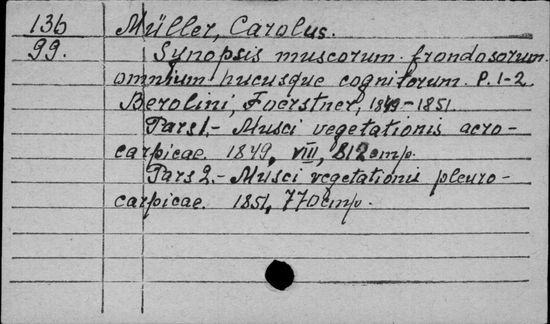 136 Müller, Carolus.
99. Synopsis muscorum frondosorum
omnium hucusque cognitorum. P. 1-2
Berolini, Foerstner, 1849-1851.
Pars 1.- Musci vegetationis acro-
carpicae. 1849, VIII, 812 стр.
Pars 2.- Musci vegetationis pleuro-
carpicae. 1851, 770 стр.